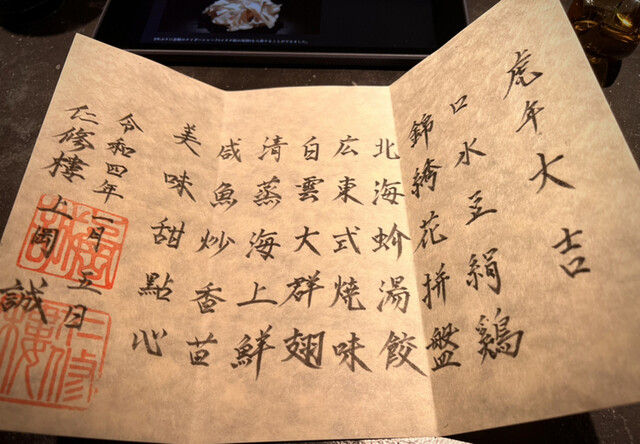 虎年大吉
口水豆絹鶏
錦綉花拼盤
北海蚧湯餃
広東式焼味
白雲大群翅
清蒸海上鮮
咸魚炒香苗
美味甜點心
令和四年一月五日
仁修樓上岡誠
仁修樓